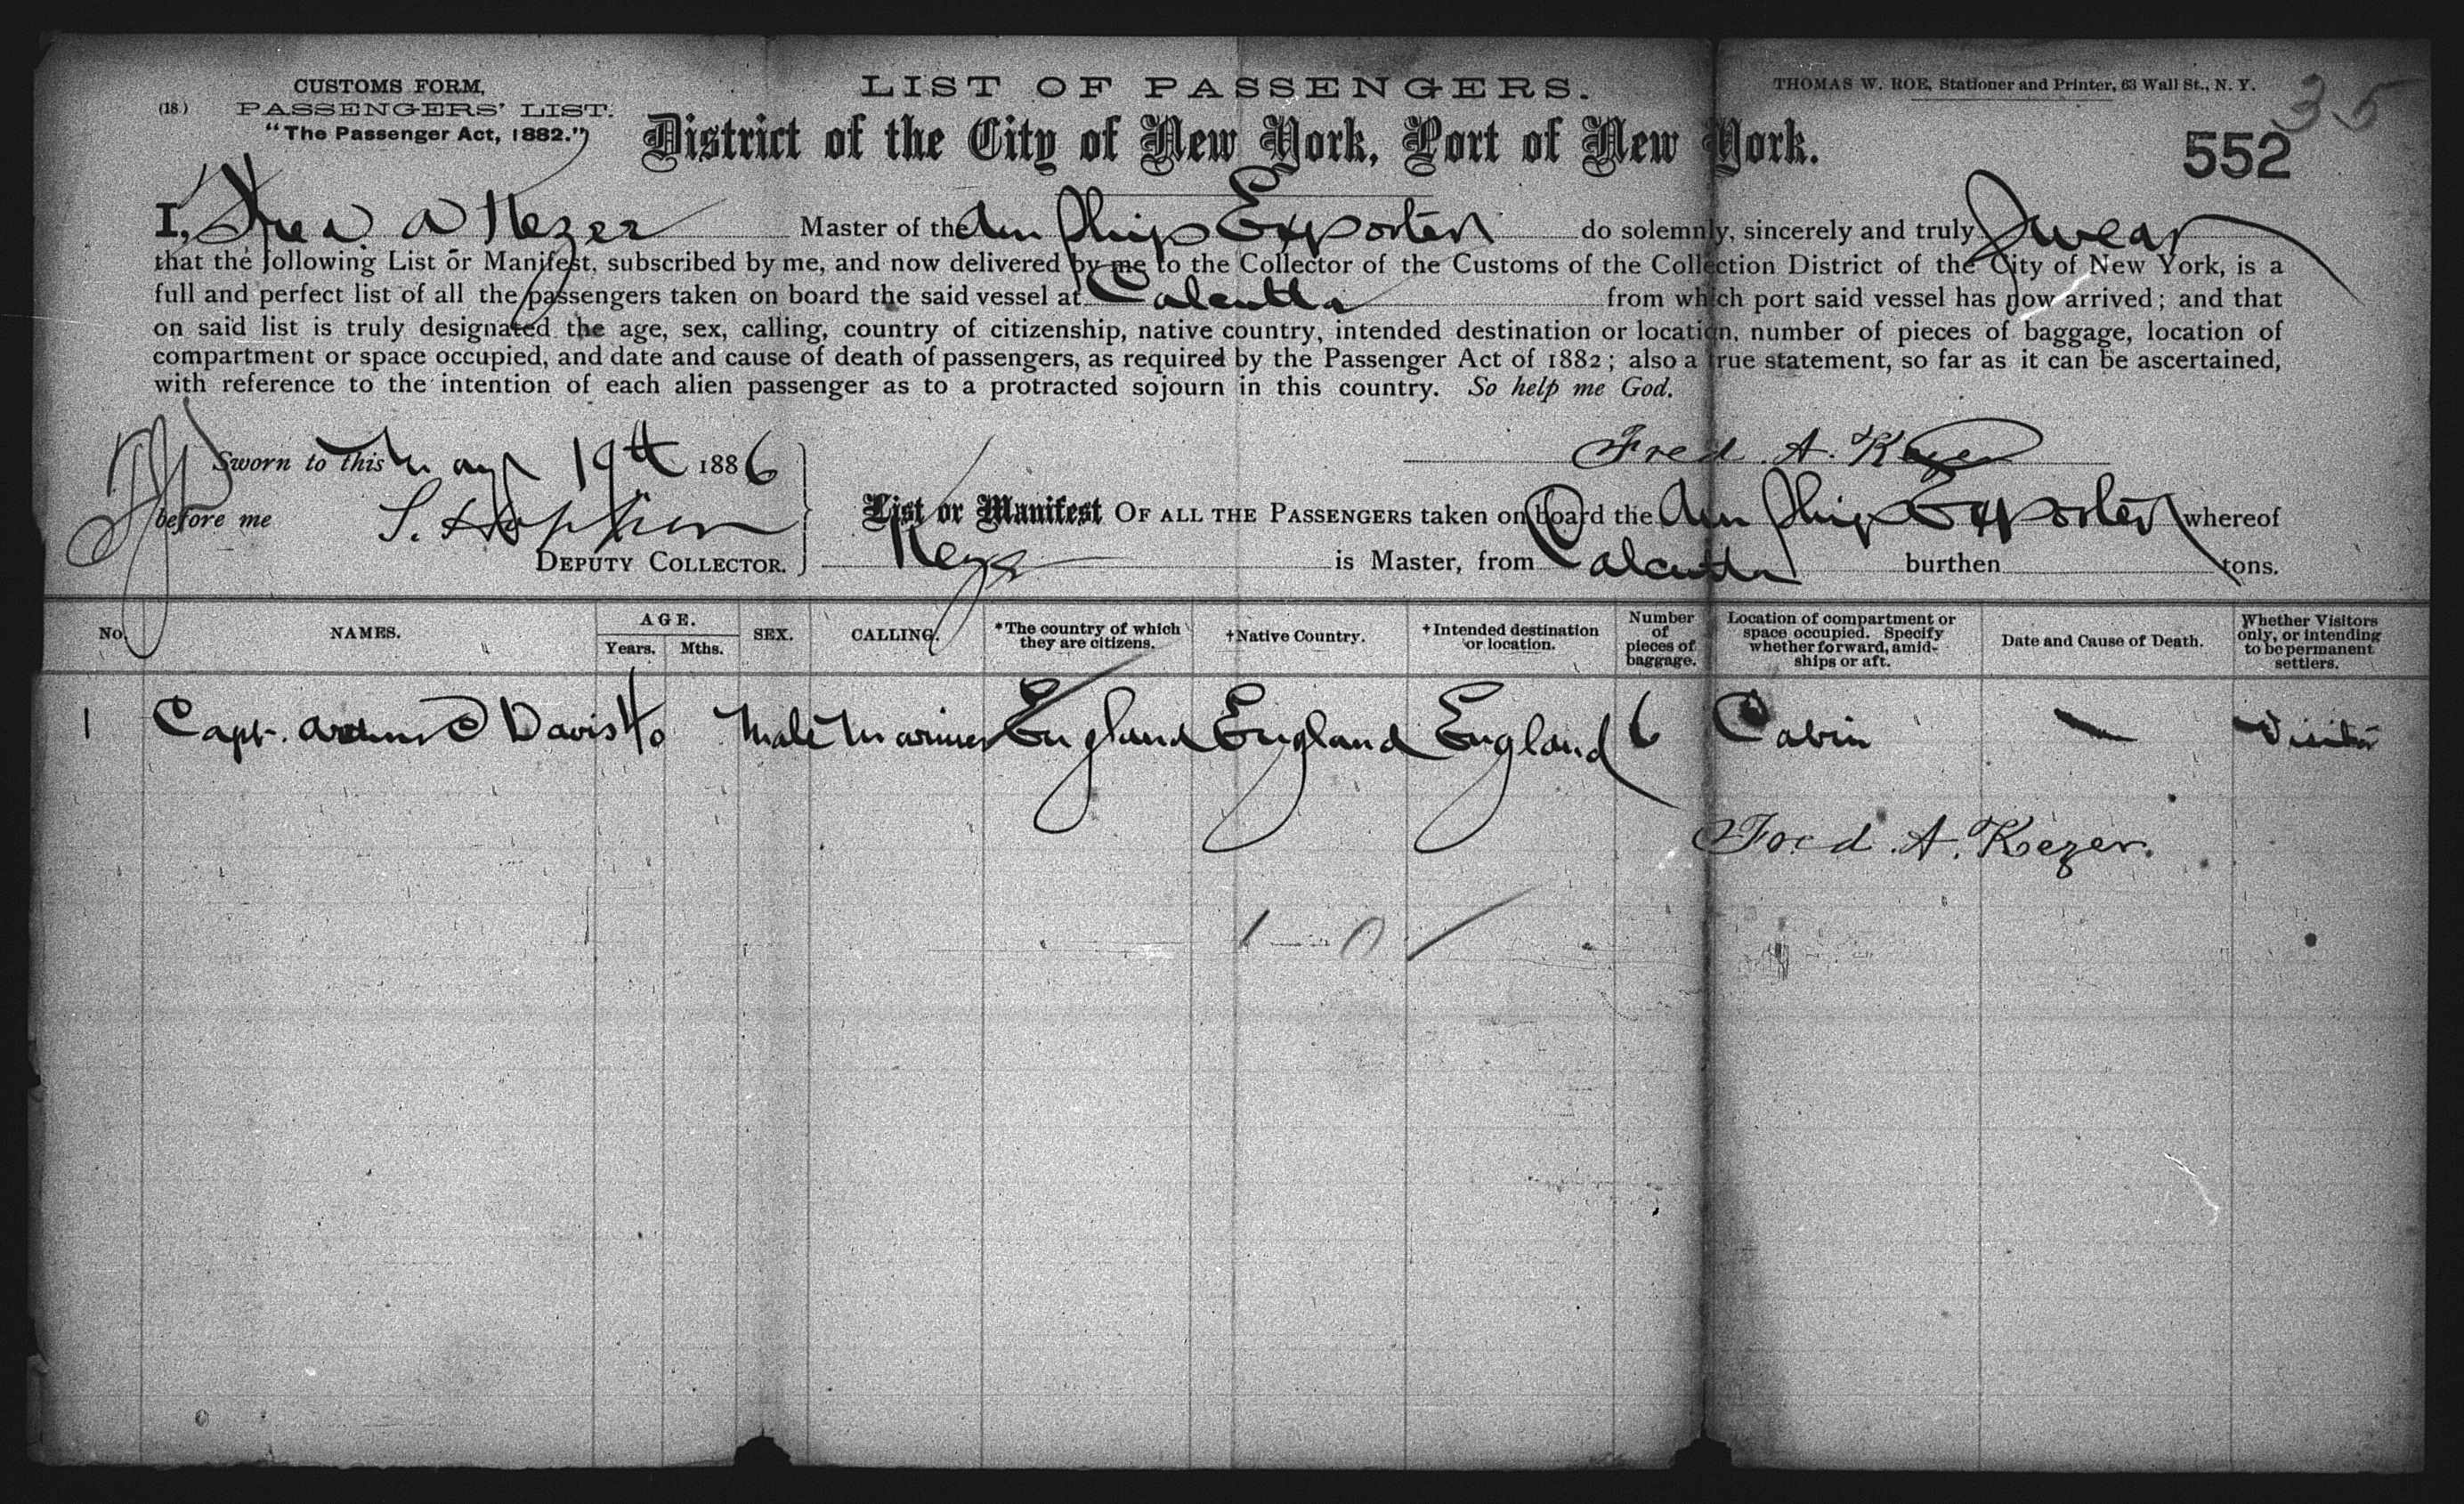 CUSTOMS FORM,
(18.) PASSENGERS' LIST.
"The Passenger Act, 1882."
LIST OF PASSENGERS.
THOMAS W. ROE, Stationer and Printer, 63 Wall St., N. Y.
35
District of the City of New York, Port of New York.
552
I, Fred A Kezer Master of the Am Ship Exporter do solemnly, sincerely and truly Swear
that the following List or Manifest, subscribed by me, and now delivered by me to the Collector of the Customs of the Collection District of the City of New York, is a
full and perfect list of all the passengers taken on board the said vessel at Calcutta from which port said vessel has now arrived; and that
on said list is truly designated the age, sex, calling, country of citizenship, native country, intended destination or location, number of pieces of baggage, location of
compartment or space occupied, and date and cause of death of passengers, as required by the Passenger Act of 1882; also a true statement, so far as it can be ascertained,
with reference to the intention of each alien passenger as to a protracted sojourn in this country. So help me God.
Sworn to this May 19th 1886
Fred. A. Kezer
before me S.
DEPUTY COLLECTOR.
List or Manifest OF ALL THE PASSENGERS taken on board the Am Ship Exporter whereof
Kezer is Master, from Calcutta burthen tons.
No. NAMES. AGE. Years. Mths. SEX. CALLING. *The country of which they are citizens. †Native Country. †Intended destination or location. Number of pieces of baggage. Location of compartment or space occupied. Specify whether forward, amidships or aft. Date and Cause of Death. Whether Visitors only, or intending to be permanent settlers.
1 Capt. Davis 40 Male Mariner England England England 6 Cabin Visitor
Fred. A. Kezer.
1 - 0